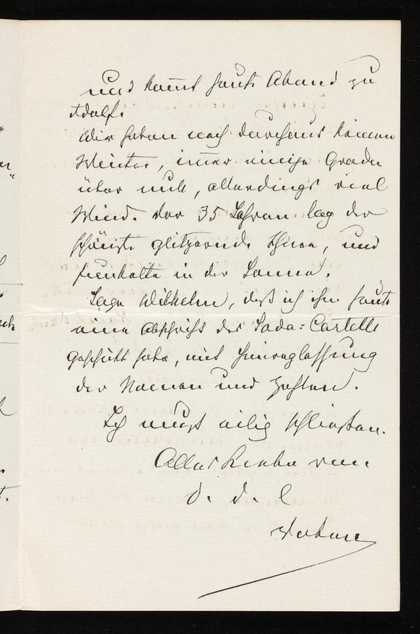 und kommt heute Abend zu
Adolf.
Wir haben noch durchaus keinen
Winter, immer einige Grade
über null, allerdings viel
Wind. Vor 35 Jahren lag der
schönste glitzernde Schnee, und
in der Sonne.
Sage Wilhelm, daß ich ihm heute
eine Abschrift des Soda-Cartells
geschickt habe, mit Hinweglassung
der Namen und Zahlen.
Ich muß eilig schließen.
Alles Liebe von
d. d. l